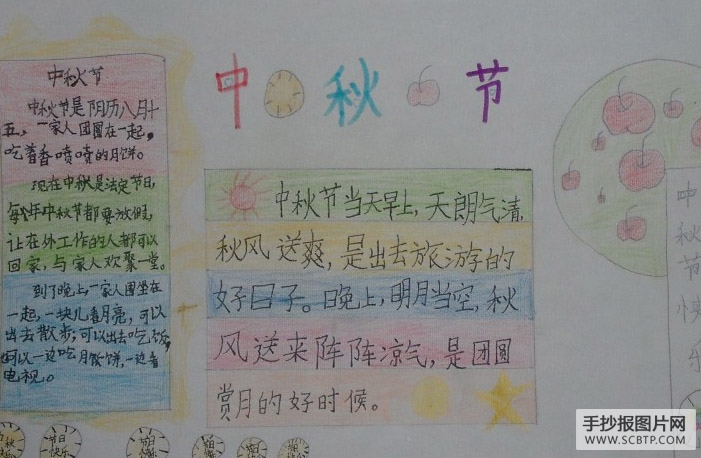 中秋节
中秋节
中秋节是阴历八月十
五，一家人团圆在一起，
吃着香喷喷的月饼。
现在中秋是法定节日，
每年中秋节都要放假，
让在外工作的人都可以
回家，与家人欢聚一堂。
到了晚上，一家人围坐在
一起，一块儿看月亮，可以
出去散步；可以出去吃饭，
可以一边吃月饼，一边看
电视。
中秋节当天早上，天朗气清，
秋风送爽，是出去旅游的
好日子。晚上，明月当空，秋
风送来阵阵凉气，是团圆
赏月的好时候。
中秋节快乐
节日
快乐
手抄报图片网
WWW.SCBTP.COM